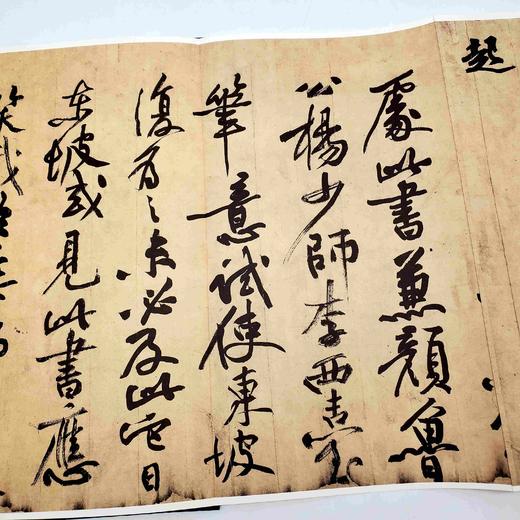 處此書兼顏魯
公楊少師李西臺
筆意試使東坡
復為之未必及此它日
東坡或見此書應
笑我於無